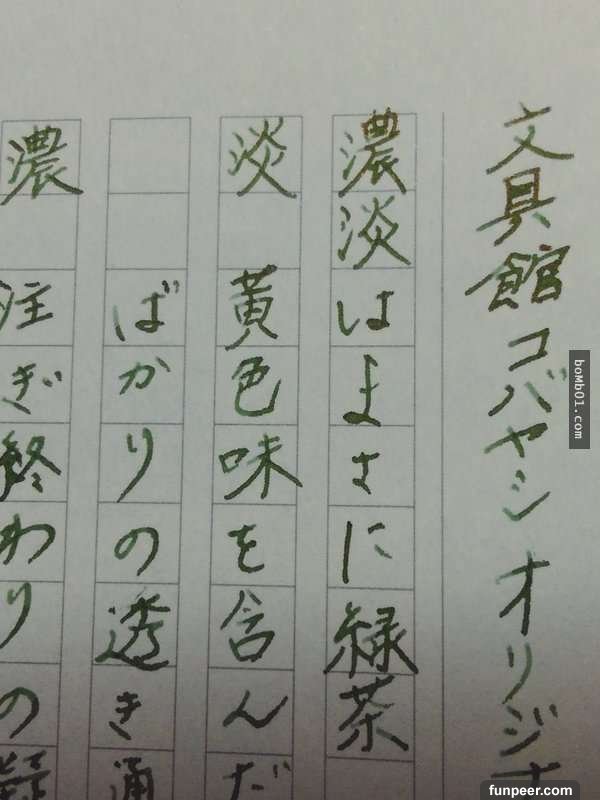 文具館コバヤシオリジナ
濃淡はまさに緑茶
淡 黄色味を含んだ
ばかりの透き通
濃 注ぎ終わりの
boMb01.com
funpeer.com